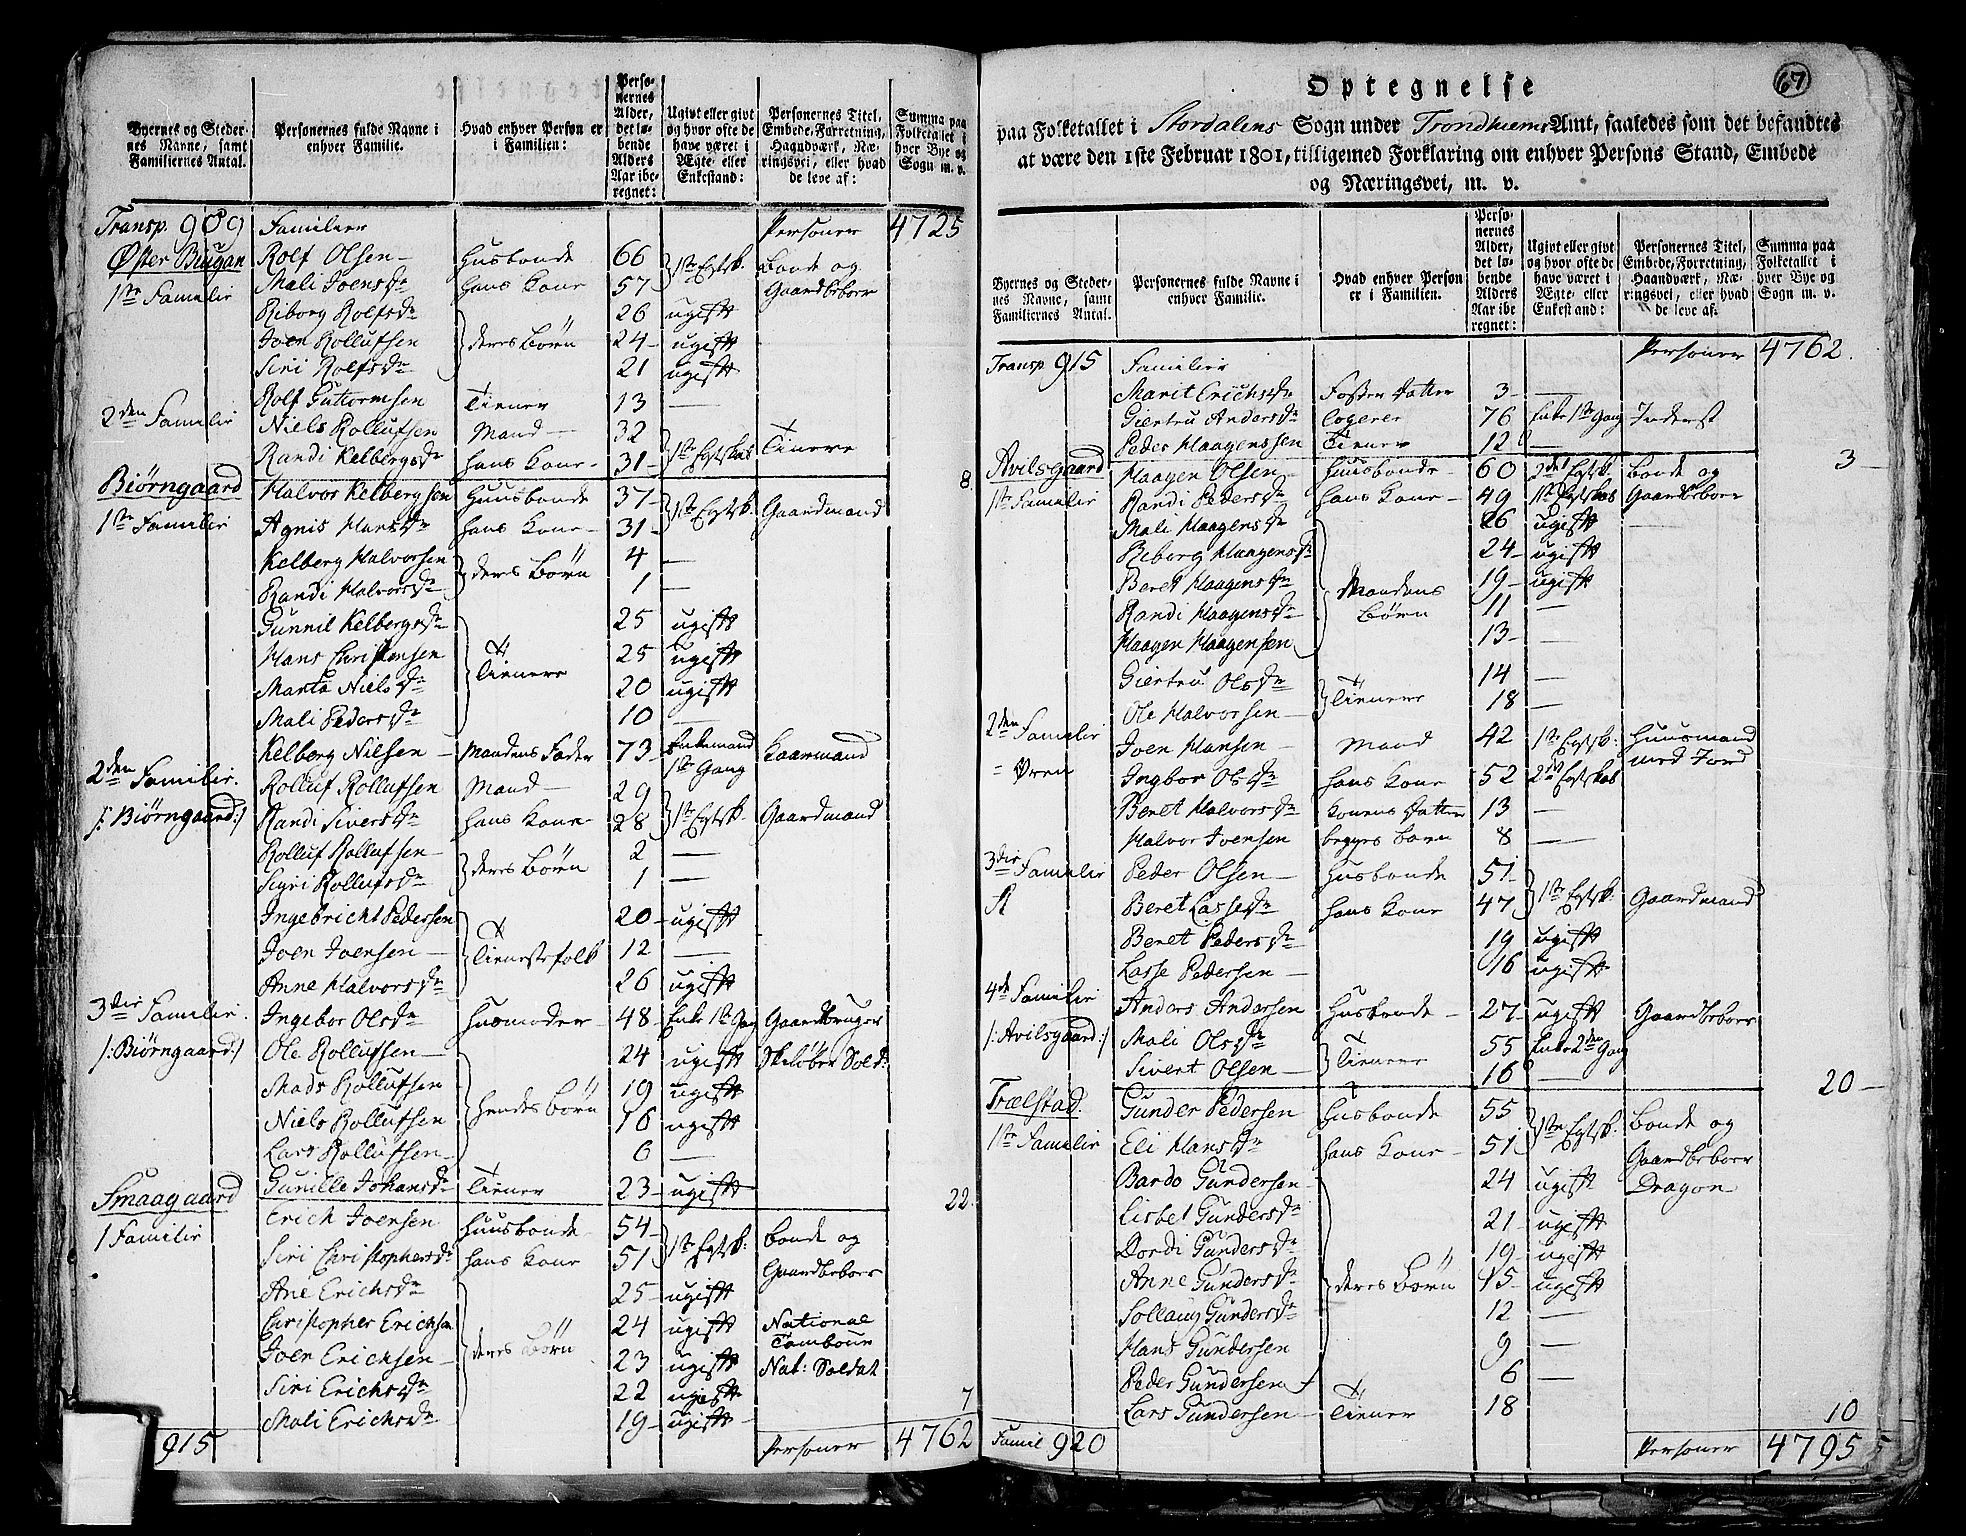 Byernes og Stedernes Navne, samt Familiernes Antal. | Personernes fulde Navne i enhver Familie. | Hvad enhver Person er i Familien: | Personernes Alder, det løbende Alders Aar iberegnet: | Ugivt eller givt og hvor ofte de have været i Ægte eller Enkestand: | Personernes Titel, Embede, Forretning, Haandværk, Næringsvei, eller hvad de leve af: | Summa paa Folketallet i hver Bye og Sogn m. v.
Transp. 909 Familier Personer 4725
Øster Biugan Rolf Olsen Husbonde 66 1ste Egtsk. Bonde og
1ste Familie Mali Joensdr hans Kone 57 Gaardbeboer
Riborg Rolfsdr 26 ugift
Joen Rollufsen deres Børn 24 ugift
Siri Rolfsdr 21 ugift
Rolf Guttormsen Tiener 13 —
2den Familie Niels Rollufsen Mand 32 1ste Egtskab Tienere
Randi Kelbergsdr hans Kone 31
8
Biørngaard Halvor Kelbergsen Huusbonde 37 1ste Egtsk. Gaardmand
1ste Familie Agnis Hansdr hans Kone 31
Kelberg Halvorsen deres Børn 4 —
Randi Halvorsdr 1 —
Gunnil Kelbergsdr 25 ugift
Hans Christensen Tienere 25 ugift
Marta Nielsdr 20 ugift
Mali Pedersdr 10 —
Kelberg Nilsen Mandens Fader 73 Enkemand 1ste Gang Kaarmand
2den Familie. Rolluf Rollufsen Mand 29 1ste Egtsk. Gaardmand
/: Biørngaard :/ Randi Siversdr hans Kone 28
Rolluf Rollufsen deres Børn 2 —
Sigri Rollufsdr 1 —
Ingebricht Pedersen 20 ugift
Joen Joensen Tienestefolk 12 —
Anne Halvorsdr 26 ugift
3die Familie. Ingebor Olsdr Husmoder 48 Enke 1ste Gang Gaardbruger
/: Biørngaard :/ Ole Rollufsen 24 ugift Skiløber Sold:
Mads Rollufsen hendes Børn 19 ugift
Niels Rollufsen 16 ugift
Lars Rollufsen 6 —
Gunille Johansdr Tiener 23 ugift
22.
Smaagaard Erich Joensen Huusbonde 54 1ste Egtsk: Bonde og
1 Familie Siri Christophersdr hans Kone 51 Gaardbeboer
Ane Erichsdr 25 ugift
Christopher Erichsen 24 ugift National Tambour
Joen Erichsen deres Børn 23 ugift Nat: Soldat
Siri Erichsdr 22 ugift
Mali Erichsdr 19 ugift
7
915 Personer 4762
67
Optegnelse
paa Folketallet i Stordalens Sogn under Trondhiems Amt, saaledes som det befandtes
at være den 1ste Februar 1801, tilligemed Forklaring om enhver Persons Stand, Embede
og Næringsvei, m. v.
Byernes og Stedernes Navne, samt Familiernes Antal. | Personernes fulde Navne i enhver Familie. | Hvad enhver Person er i Familien. | Personernes Alder, det løbende Alders Aar iberegnet: | Ugivt eller givt og hvor ofte de have været i Ægte eller Enkestand: | Personernes Titel, Embede, Forretning, Haandværk, Næringsvei, eller hvad de leve af: | Summa paa Folketallet i hver Bye og Sogn m. v.
Transp 915 Familier Personer 4762.
Marit Erichsdr Foster Datter 3 —
Giertru Andersdr Logerer 76 Enke 1ste Gang Inderst
Peder Haagenssen Tiener 12 —
3
Avilsgaard Haagen Olsen Huusbonde 60 2det Egtsk. Bonde og
1ste Familie Randi Pedersdr hans Kone 49 1ste Egtskab Gaardbeboer
Mali Haagensdr 26 ugift —
Reborg Haagensdr 24 ugift
Beret Haagensdr Mandens Børn 19 ugift
Randi Haagensdr 11 —
Haagen Haagensen 13 —
Giertru Olsdr Tienere 14 —
Ole Halvorsen 18 —
2den Familie Joen Hansen Mand 42 1ste Egtsk: Huusmand
= Øren Ingbor Olsdr hans Kone 52 2det Egtskab med Jord
Beret Halvorsdr Konens Datter 13 —
Halvor Joensen begges Barn 8 —
3die Familie Peder Olsen Husbonde 51 1ste Egtsk: Gaardmand
Beret Lassedr hans Kone 47
Beret Pedersdr 19 ugift
Lasse Pedersen 16 ugift
4de Familie Anders Andersen Husbonde 27 ugift Gaardbeboer
/: Avilsgaard :/ Mali Olsdr Tienere 55 Enke 2den Gang
Sivert Olsen 16 —
20
Trælstad. Gunder Pedersen Husbonde 55 1ste Egtsk: Bonde og
1ste Familie Eli Hansdr hans Kone 51 Gaardbeboer
Bardo Gundersen 24 ugift Dragon
Lisbet Gundersdr 21 ugift
Dordi Gundersdr 19 ugift
Anne Gundersdr deres Børn 15 ugift
Sollaug Gundersdr 12 —
Hans Gundersen 9 —
Peder Gundersen 6 —
Lars Gundersen Tiener 18
10
Famil 920 Personer 4795